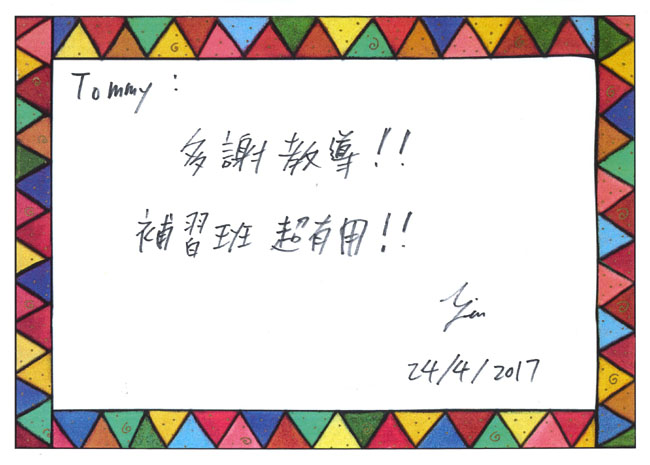 Tommy:
多謝教導!!
補習班超有用!!
24/4/2017